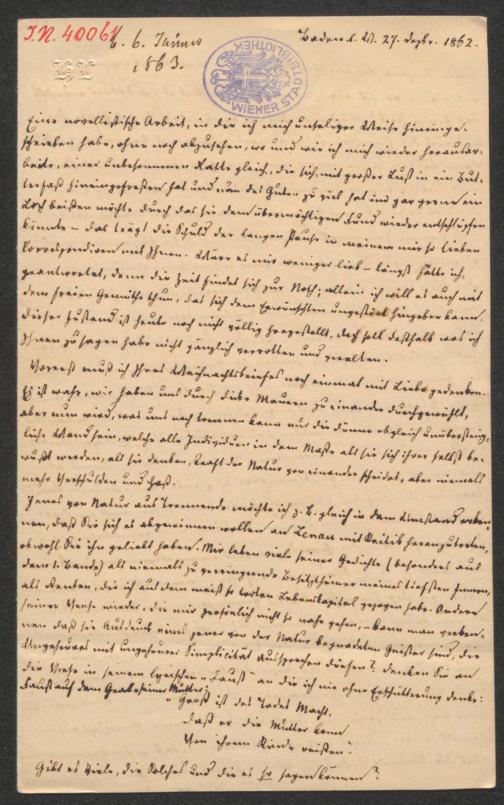 I.N. 40061
b. 6. Jänner
1863.
Baden b. W. 27. Dezbr. 1862.
WIENER STADTBIBLIOTHEK
Eine novellistische Arbeit, in die ich mich unseliger Weise hineinge-
schrieben habe, ohne noch abzusehen, wo und wie ich mich wieder herausar-
beite, einer unbesonnenen Ratte gleich, die sich mit großer Lust in ein But-
terfaß hineingefressen hat und nun des Guten zu viel hat und gar gerne ein
Loch beißen möchte durch das sie dem übermächtigen Fund wieder entschlüpfen
könnte – das trägt die Schuld der langen Pause in meinem mir so lieben
Korrespondiren mit Ihnen. Wäre es mir weniger lieb – längst hätte ich
geantwortet, denn die Zeit findet sich zur Noth; allein ich will es auch mit
dem freien Gemüthe thun, das sich dem Erwünschten ungestört hingeben kann.
Dieser Zustand ist heute noch nicht völlig hergestellt, doch soll deshalb was ich
Ihnen zu sagen habe nicht gänzlich verrotten und veralten.
Vorerst muß ich Ihres Weihnachtsbriefes noch einmal mit Liebe gedenken.
Es ist wahr, wir haben uns durch dicke Mauern zu einander durchgewühlt,
aber nun wird, was uns noch trennen kann nur die dünne obgleich unübersteig-
liche Wand sein, welche alle Individuen in dem Maße als sie sich ihrer selbst be-
wußt werden, als sie denken, kraft der Natur von einander scheidet, aber niemals
mehr Verschulden und Haß.
Jenes von Natur aus Trennende möchte ich z. B. gleich in dem Umstand erken-
nen, daß Sie sich es abgewinnen wollen an Lenau mit Kritik heranzutreten,
obwohl Sie ihn geliebt haben. Mir leben viele seiner Gedichte (besonders aus
dem 1. Bande) als niemals zu verringernde Besitzthümer meines tiefsten Innern,
als Renten, die ich aus dem meist so todten Lebenskapital gezogen habe. Andere
seiner Verse wieder, die mir persönlich nicht so nahe gehen, – kann man verken-
nen daß sie Ausdruck eines jener von der Natur begnadeten Geister sind, die
Ungeheures mit ungeheurer Simplicität aussprechen dürfen? Denken Sie an
die Verse in seinem lyrischen „Faust“ an die ich nie ohne Erschütterung denke:
Faust auf dem Grabe seiner Mutter:
„Groß ist des Todes Macht,
Daß er die Mutter kann
Von ihrem Kinde reißen“.
Gibt es Viele, die Solches und die es so sagen können?